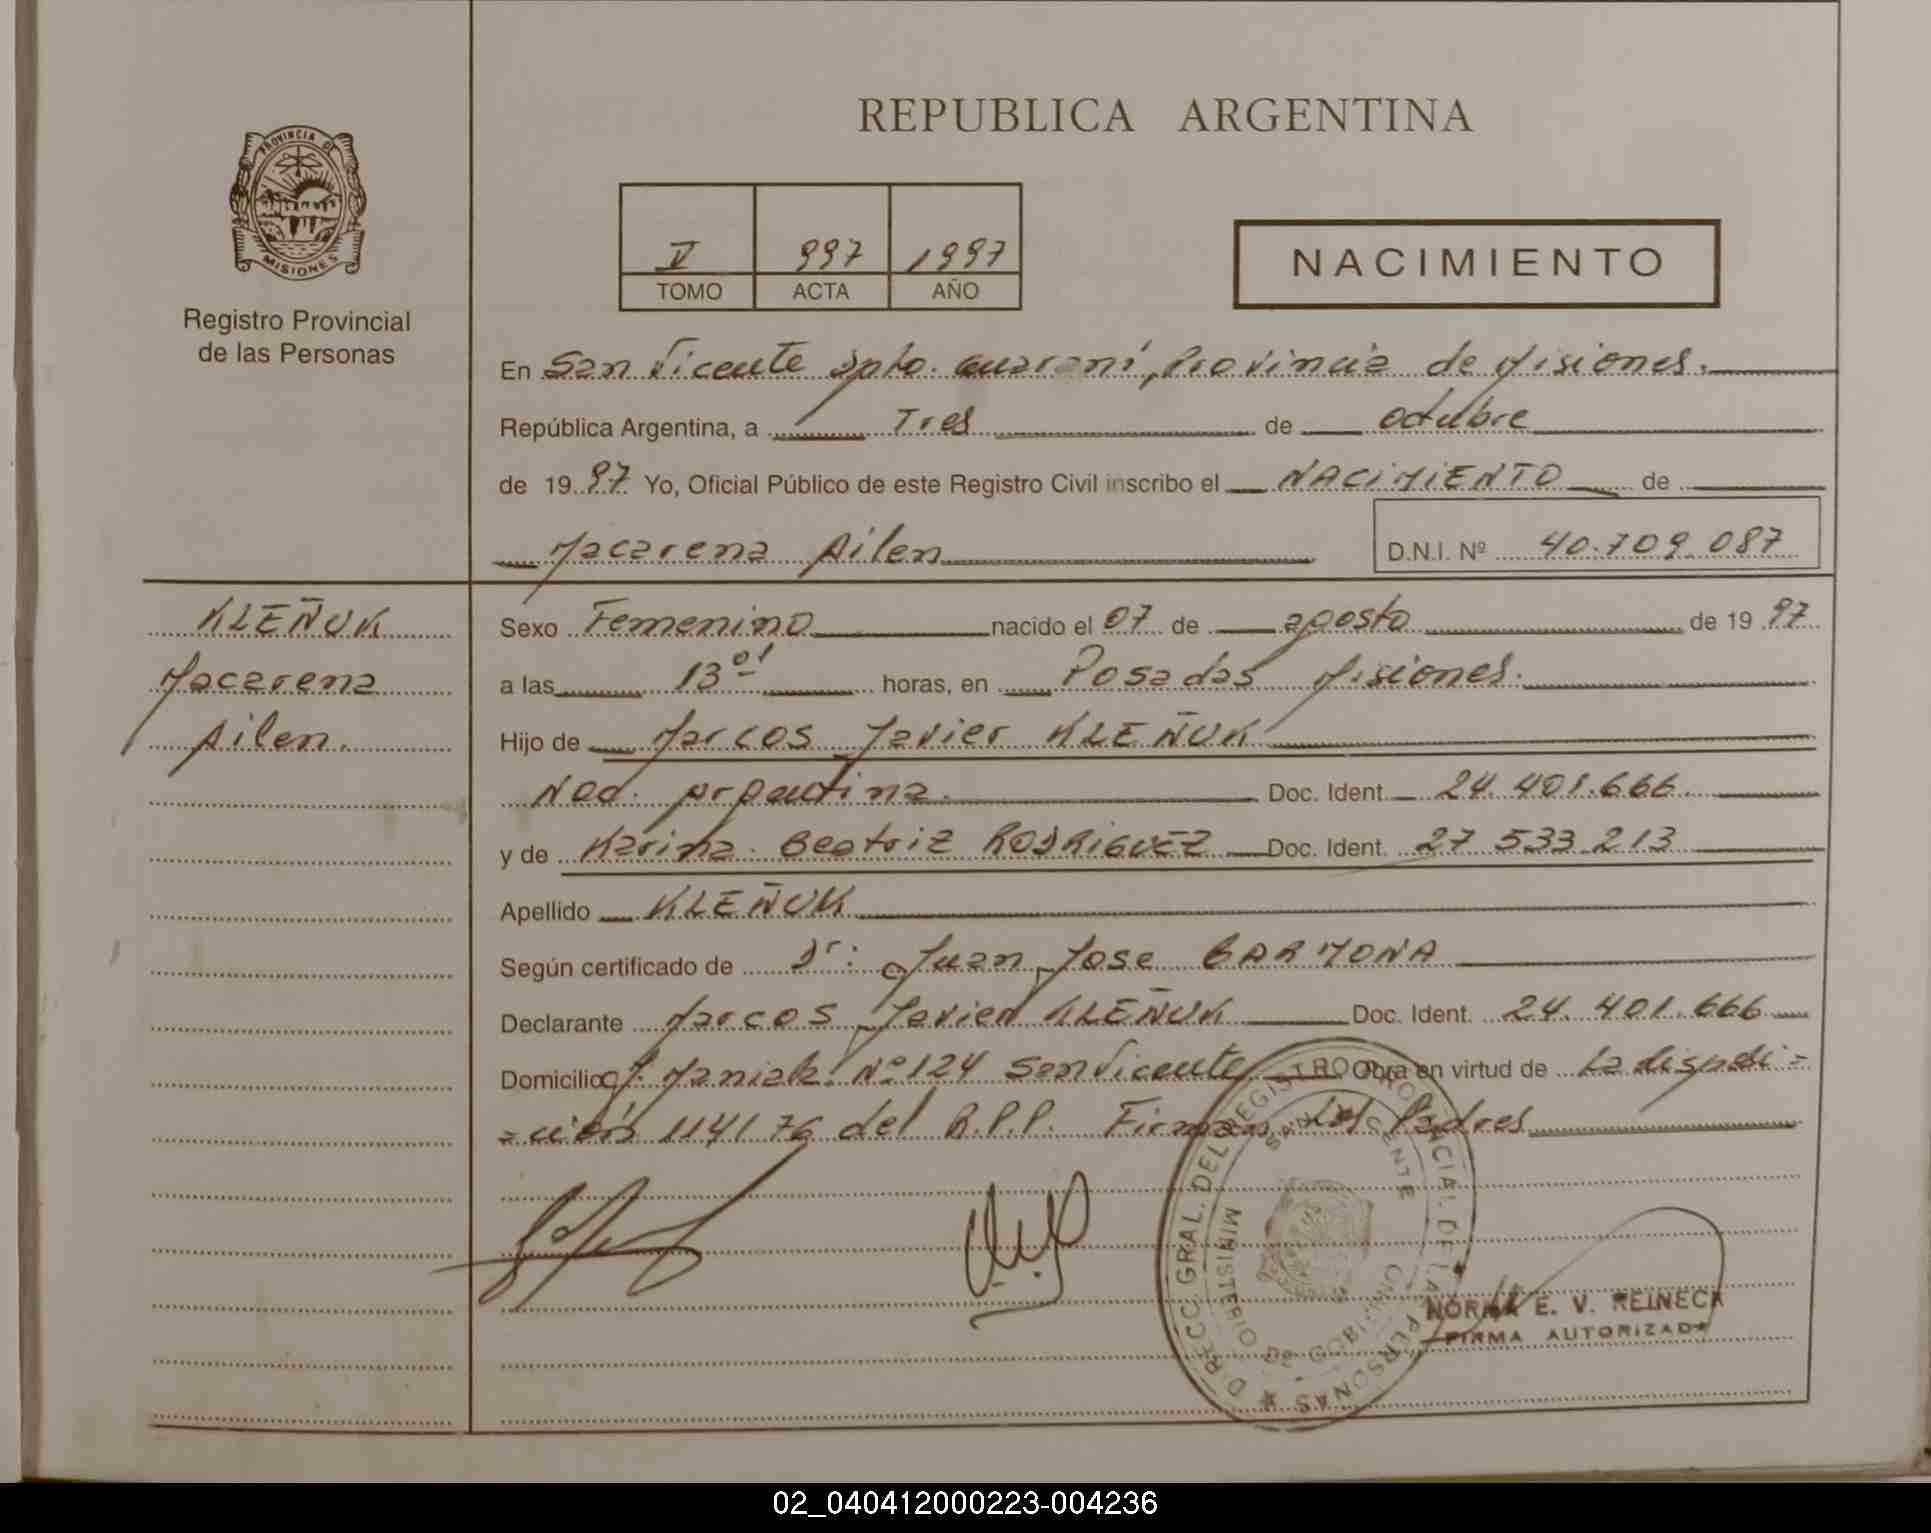 REPUBLICA ARGENTINA
PROVINCIA DE
MISIONES
Registro Provincial
de las Personas
V 997 1997
TOMO ACTA AÑO
NACIMIENTO
En San Vicente Dpto. Guaraní, Provincia de Misiones.
República Argentina, a Tres de octubre
de 1997 Yo, Oficial Público de este Registro Civil inscribo el NACIMIENTO de
Macarena Ailen D.N.I. Nº 40.709.087
KLEÑUK
Macarena
Ailen.
Sexo Femenino nacido el 07 de agosto de 1997
a las 13 01 horas, en Posadas Misiones.
Hijo de Marcos Javier KLEÑUK
Nac. Argentina. Doc. Ident. 24.401.666.
y de Karina Beatriz RODRIGUEZ Doc. Ident. 27 533 213
Apellido KLEÑUK
Según certificado de Dr: Juan Jose CARMONA
Declarante Marcos Javier KLEÑUK Doc. Ident. 24.401.666
Domicilio Nº 124 San Vicente Obra en virtud de La disposi=
=ción 114176 del R.P.P. Firman los Padres
DIRECC. GRAL. DEL REGISTRO PROVINCIAL DE LAS PERSONAS
SAN VICENTE
MINISTERIO DE GOBIERNO
NORMA E. V. REINECK
FIRMA AUTORIZADA
02_040412000223-004236